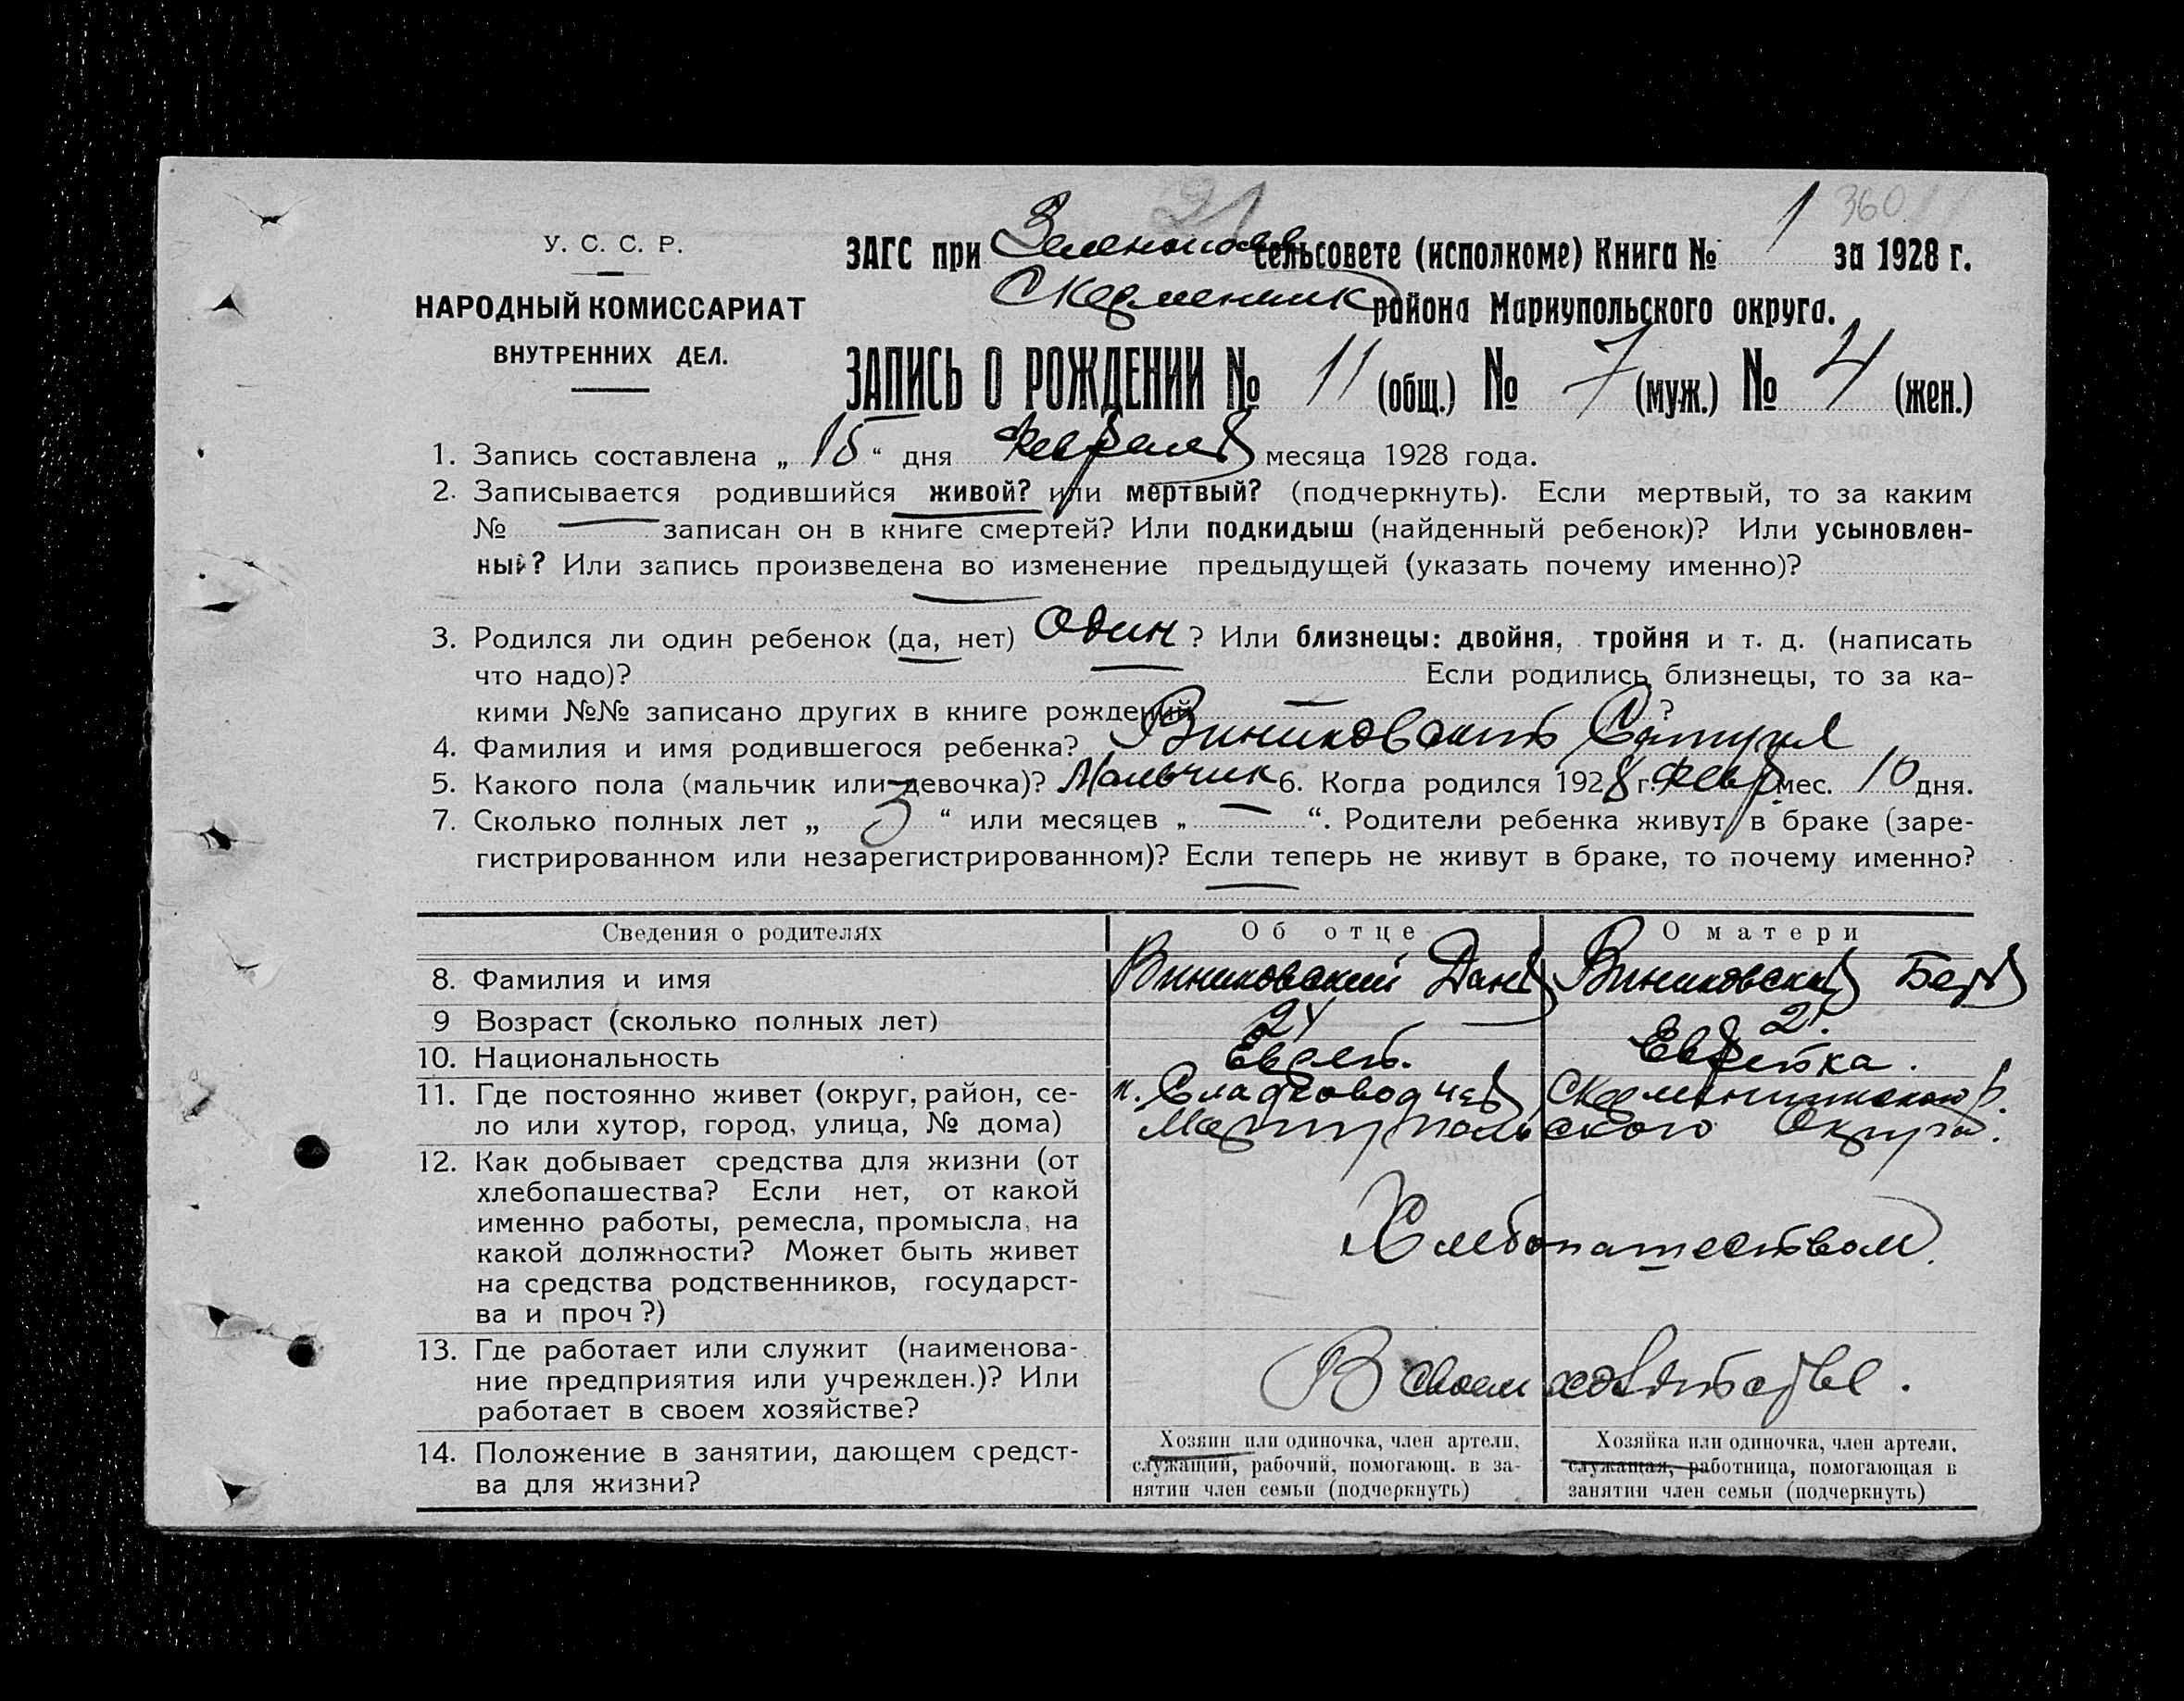 21
360
У. С. С. Р.
НАРОДНЫЙ КОМИССАРИАТ
ВНУТРЕННИХ ДЕЛ.
ЗАГС при Зеленопол сельсовете (исполкоме) Книга № 1 за 1928 г.
района Мариупольского округа.
ЗАПИСЬ О РОЖДЕНИИ № 11 (общ.) № 7 (муж.) № 4 (жен.)
1. Запись составлена „ 15 “ дня Февраля месяца 1928 года.
2. Записывается родившийся живой? или мертвый? (подчеркнуть). Если мертвый, то за каким
№ — записан он в книге смертей? Или подкидыш (найденный ребенок)? Или усыновлен-
ный? Или запись произведена во изменение предыдущей (указать почему именно)?
—
3. Родился ли один ребенок (да, нет) Один ? Или близнецы: двойня, тройня и т. д. (написать
что надо)? — Если родились близнецы, то за ка-
кими №№ записано других в книге рождений — ?
4. Фамилия и имя родившегося ребенка? Виниковский
5. Какого пола (мальчик или девочка)? Мальчик 6. Когда родился 1928 г. Февр мес. 10 дня.
7. Сколько полных лет „ 3 “ или месяцев „ — “. Родители ребенка живут в браке (заре-
гистрированном или незарегистрированном)? Если теперь не живут в браке, то почему именно?
—
Сведения о родителях Об отце О матери
8. Фамилия и имя Виниковский Виниковская
9 Возраст (сколько полных лет) 24 21.
10. Национальность Еврей. Еврейка.
11. Где постоянно живет (округ, район, се-
ло или хутор, город, улица, № дома)
к. Сладководная
Мариупольского Округа.
12. Как добывает средства для жизни (от
хлебопашества? Если нет, от какой
именно работы, ремесла, промысла, на
какой должности? Может быть живет
на средства родственников, государст-
ва и проч?)
Хлебопашеством.
13. Где работает или служит (наименова-
ние предприятия или учрежден.)? Или
работает в своем хозяйстве?
В своем хозяйстве.
14. Положение в занятии, дающем средст-
ва для жизни?
Хозяин или одиночка, член артели,
служащий, рабочий, помогающ. в за-
нятии член семьи (подчеркнуть)
Хозяйка или одиночка, член артели.
служащая, работница, помогающая в
занятии член семьи (подчеркнуть)